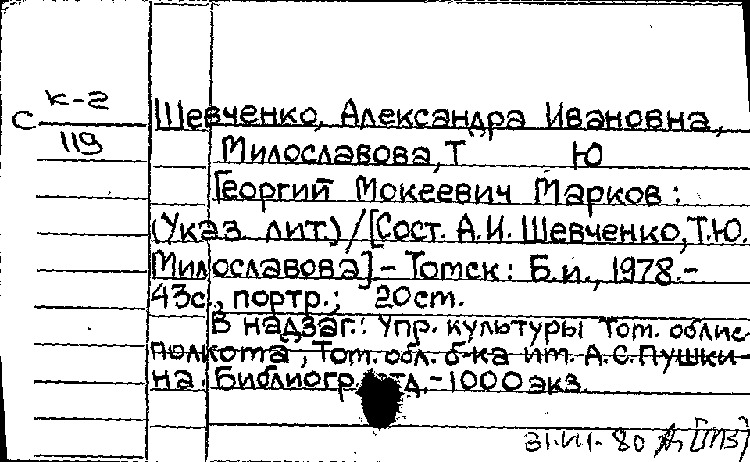 К-2
С
119
Шевченко, Александра Ивановна,
Милославова, Т Ю
Георгий Мокеевич Марков:
(Указ. лит.) / [Сост. А.И. Шевченко, Т.Ю.
Милославова] - Томск: Б.и., 1978.-
43с., портр.; 20см.
В надзаг.: Упр. культуры Том. облис-
полкома, Том. обл. б-ка им. А.С. Пушки-
на. Библиогр. отд. - 1000 экз.
80